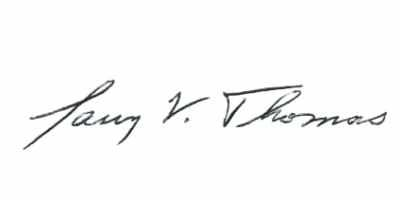 Larry V. Thomas